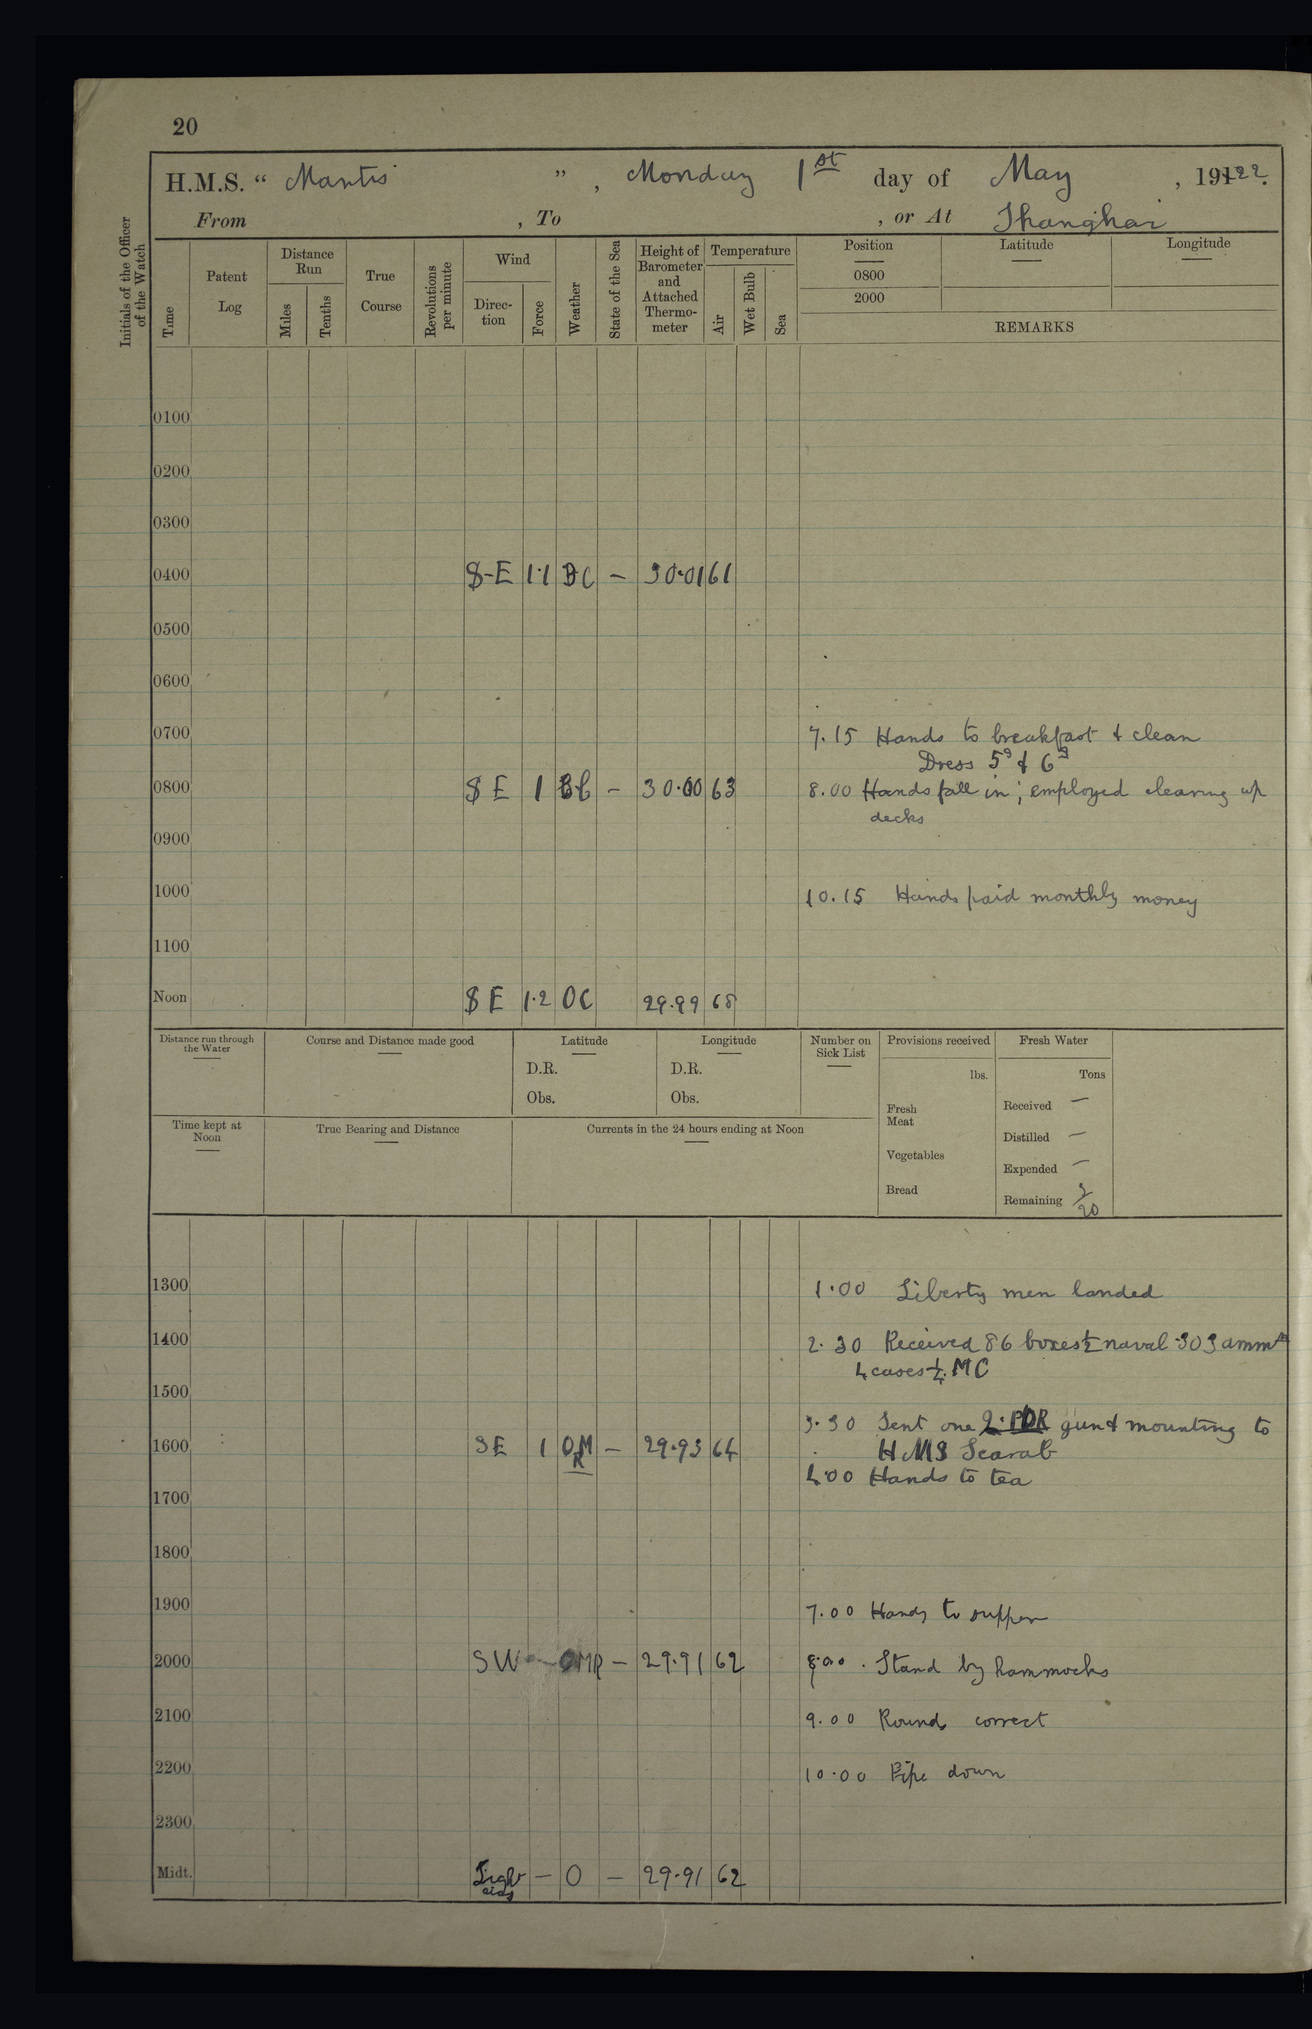 20
H.M.S. “ Mantis ” , Monday 1st day of May , 1922.
From , To , or At Shanghai
Initials of the Officer of the Watch
Time
Patent Log
Distance Run
Miles
Tenths
True Course
Revolutions per minute
Wind
Direction
Force
Weather
State of the Sea
Height of Barometer and Attached Thermometer
Temperature
Air
Wet Bulb
Sea
Position Latitude Longitude
0800
2000
REMARKS
0100
0200
0300
0400 S-E 1·1 BC – 30·01 61
0500
0600
0700 7.15 Hands to breakfast & clean
Dress 5s & 6s
0800 SE 1 – 30·00 63 8.00 Hands fall in; employed clearing up
decks
0900
1000 10.15 Hands paid monthly money
1100
Noon SE 1·2 OC 29·99 68
Distance run through the Water
Course and Distance made good
Latitude
D.R.
Obs.
Longitude
D.R.
Obs.
Number on Sick List
Provisions received
lbs.
Fresh Meat
Vegetables
Bread
Fresh Water
Tons
Received –
Distilled –
Expended –
Remaining 20
Time kept at Noon
True Bearing and Distance
Currents in the 24 hours ending at Noon
1300 1·00 Liberty men landed
1400 2·30 Received 86 boxes ½ naval ·303 ammn
4 cases ¼ MC
1500
3·30 Sent one 2·PDR gun & mounting to
1600 SE 1 OMR – 29·93 64 HMS Scarab
4·00 Hands to tea
1700
1800
1900 7·00 Hands to supper
2000 SW – OMR – 29·91 62 8·00 . Stand by hammocks
2100 9·00 Rounds correct
2200 10·00 Pipe down
2300
Midt. Light airs – O – 29·91 62